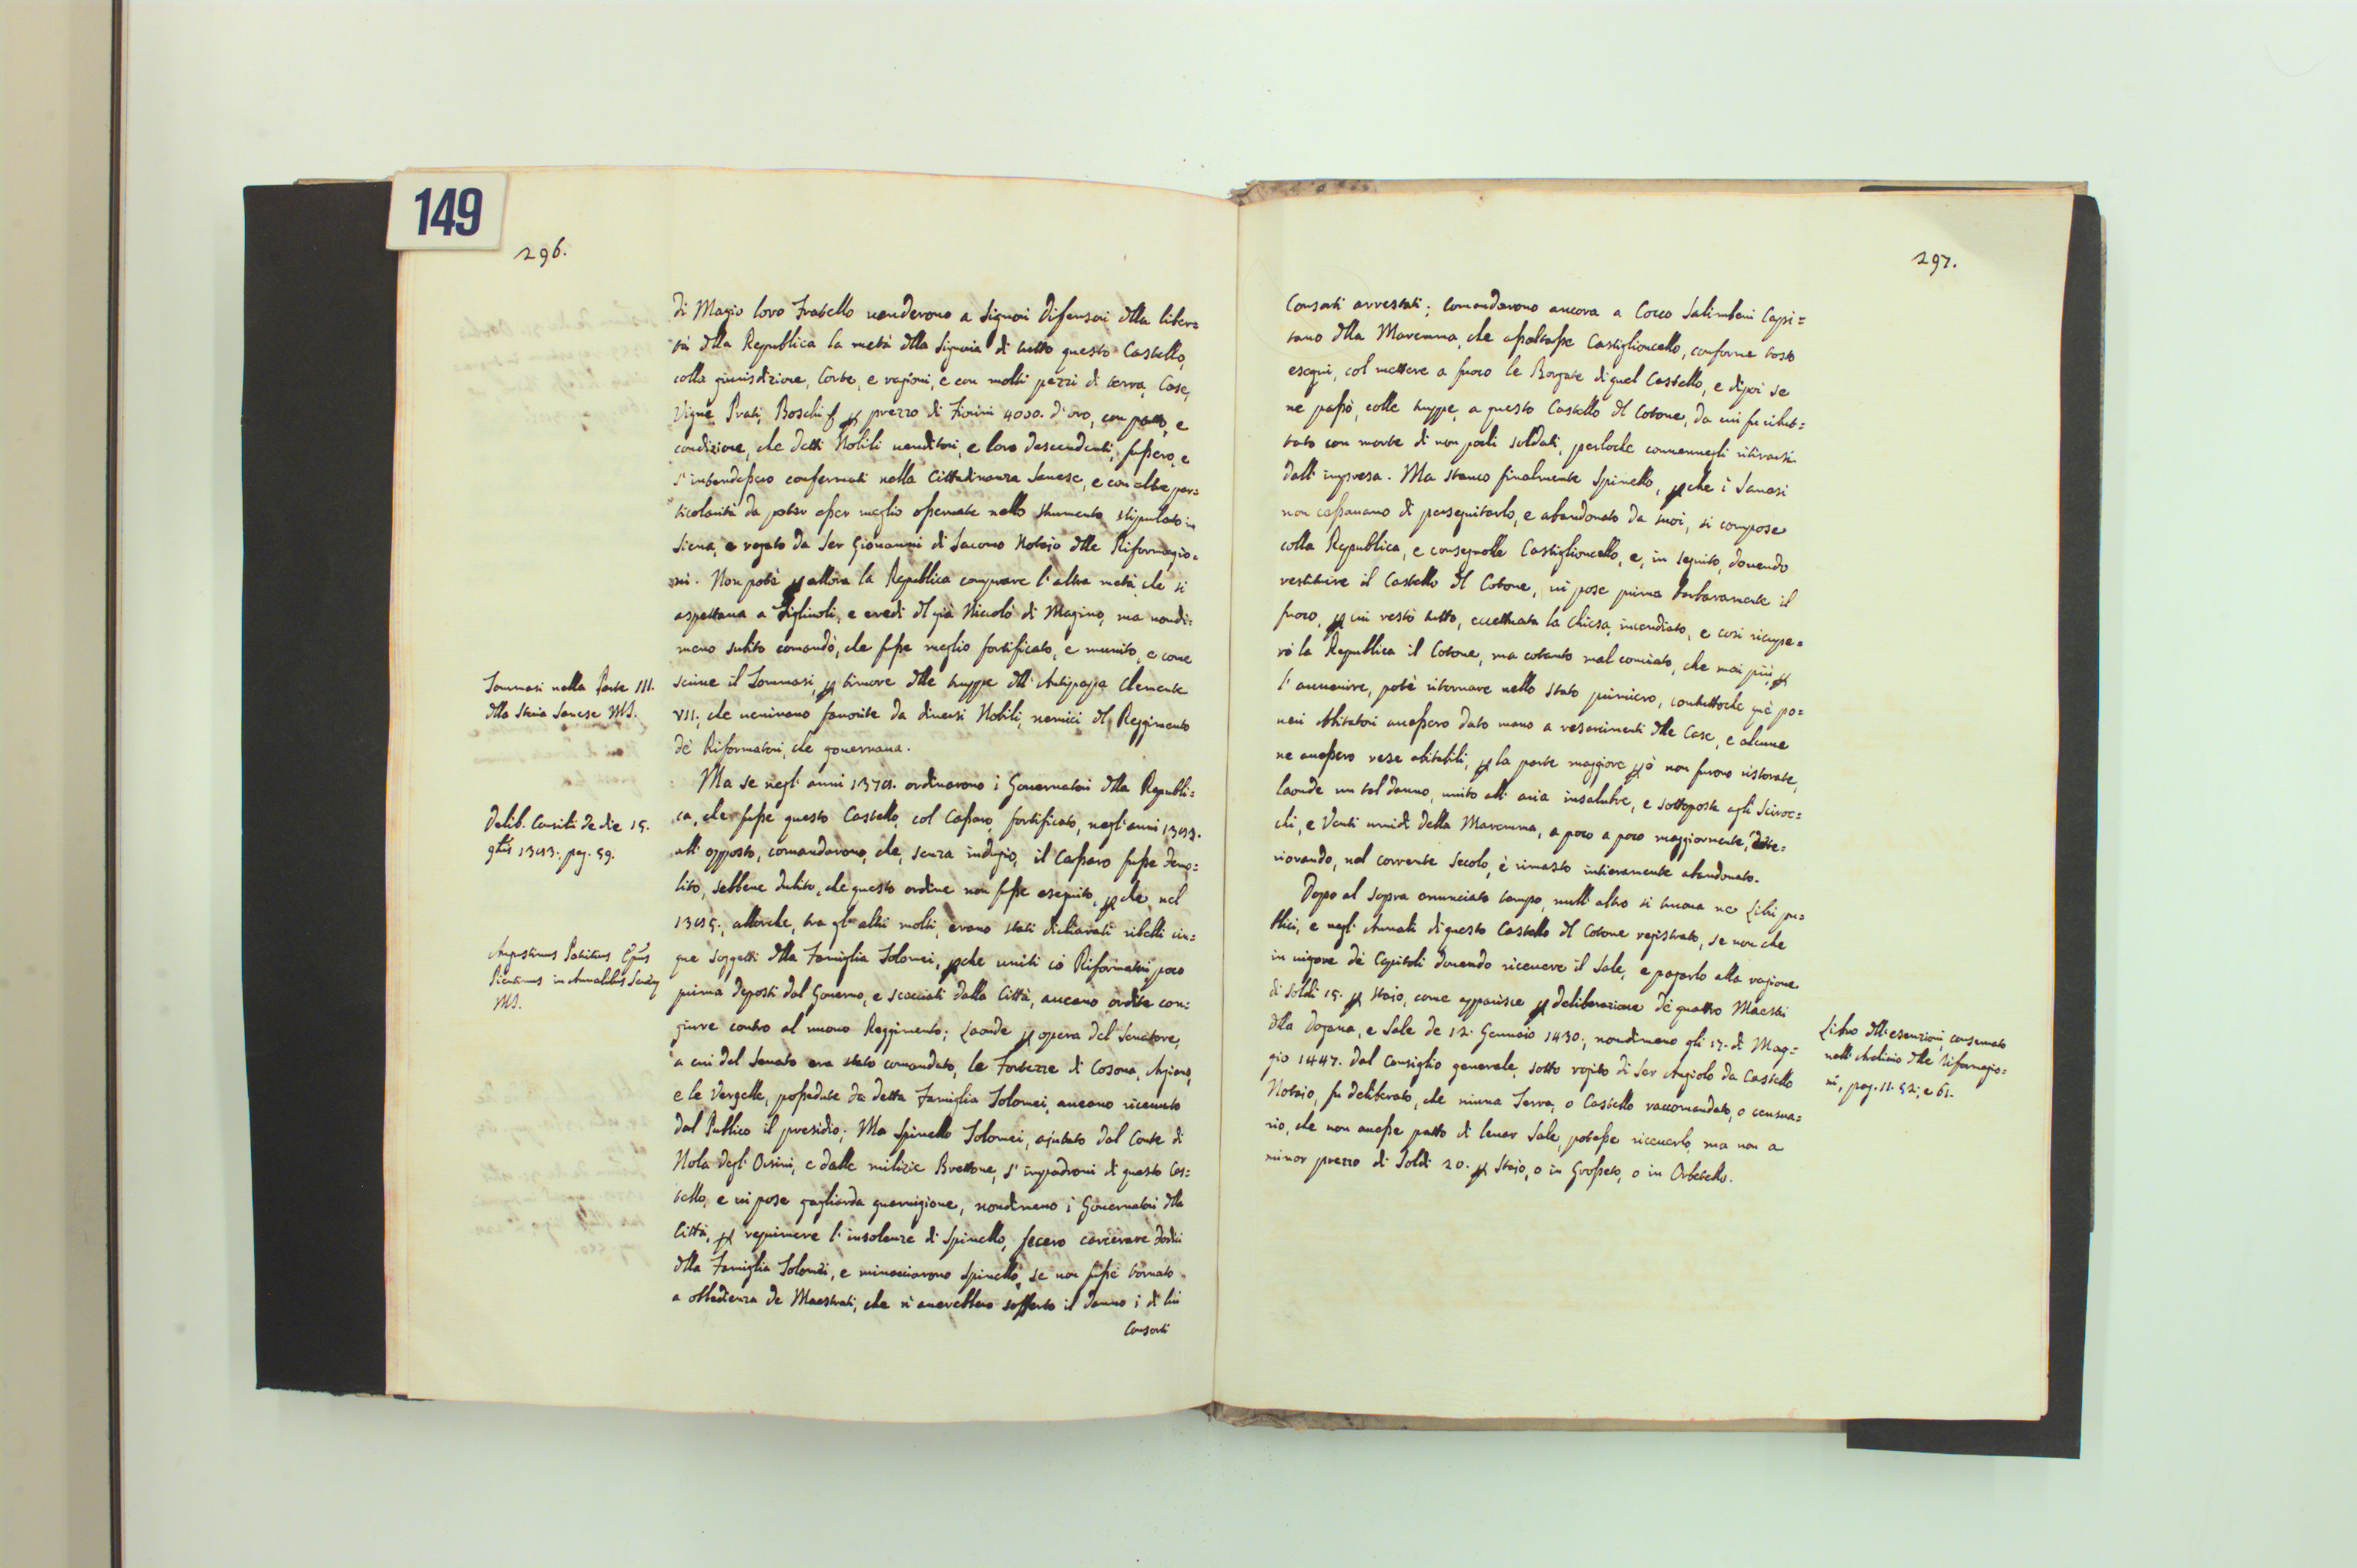 149
296.
di Magio loro Fratello venderono a Signori Difensori dlla liber=
tà dlla Republica la metà dlla Signoria di tutto questo Castello,
colla giurisdizione, Corte, e ragioni, e con molti pezzi di terra, Case,
Vigne, Prati, Boschi prezzo di Fiorini 4000. d'oro, con patto, e
condizione, che detti Nobili venditori, e loro descendenti, fussero, e
s'intendessero confermati nella Cittadinanza Sanese, e con altre par=
ticolarità da poter esser meglio osservate nello strumento stipulato in
Siena, e rogato da Ser Giovanni di Iacomo Notajo dlle Riformagio=
ni. Non potè p allora la Republica comprare l'altra metà, che si
aspettava a Figliuoli, e eredi dl già Niccolò di Magino, ma nondi=
meno subito comandò, che fusse meglio fortificato, e munito, e come
Tommasi nella Parte III.
dlla Storia Sanese MS.
scrive il Tommasi, p timore dlle truppe dll'Antipapa Clemente
VII., che venivano favorite da diversi Nobili, nemici dl Reggimento
de' Riformatori, che governava.
Ma se negli anni ordinarono i Governatori dlla Republi=
ca, che fusse questo Castello, col Cassaro, fortificato, negl'anni
Delib. Consilii de die 15.
pag. 59.
all'opposto, comandarono, che, senza indugio, il Cassaro fusse demo=
lito, sebbene dubito, che questo ordine non fusse eseguito, p che, nel
allorche, tra gl'altri molti, erano stati dichiarati ribelli cin=
Augustinus Patritius Epus
Pientinus in Annalibus
MS.
que soggetti dlla Famiglia Tolomei, pche uniti co' Riformatori poco
prima deposti dal Governo, e scacciati dalla Città, aveano ordite con=
giure contro al nuovo Reggimento; Laonde p opera del Senatore,
a cui dal Senato era stato comandato, le Fortezze di Cosona,
e le Vergelle, possedute da detta Famiglia Tolomei, aveano ricevuto
dal Publico il presidio; Ma Spinello Tolomei, ajutato dal Conte di
Nola degl'Orsini, e dalle milizie Brettone, s'impadronì di questo Cas=
tello, e vi pose gagliarda guarnigione, nondimeno i Governatori dlla
Città, p reprimere l'insolenze di Spinello, fecero carcerare dodici
dlla Famiglia Tolomei, e minacciarono Spinello, se non fusse tornato
a obbedienza de Maestrati, che n'averebbero sofferto il danno i di lui
Consorti
297.
Consorti arrestati; Comandarono ancora a Cocco Salimbeni Capi=
tano dlla Maremma, che assaltasse Castiglioncello, conforme tosto
eseguì, col mettere a fuoco le Borgate di quel Castello, e dipoi se
ne passò, colle truppe, a questo Castello dl Cotone, da cui fu ributt=
tato con morte di non pochi soldati, perloche convennegli ritirarsi
dall'impresa. Ma stanco finalmente Spinello, pche i Sanesi
non cessavano di perseguitarlo, e abandonato da suoi, si compose
colla Republica, e consegnolle Castiglioncello, e, in seguito, dovendo
restituire il Castello dl Cotone, vi pose prima barbaramente il
fuoco, p cui restò tutto, eccettuata la Chiesa, incendiato, e così ricupe=
rò la Republica il Cotone, ma cotanto mal conciato, che mai più, p
l'avvenire, potè ritornare nello stato primiero, contuttoche que' po=
veri Abitatori avessero dato mano a resarcimenti dlle Case, e alcune
ne avessero rese abitabili, p la parte maggiore p ò non furono ristorate,
laonde un tal danno, unito all'aria insalubre, e sottoposta agli Sciroc=
chi, e Venti umidi della Maremma, a poco a poco maggiormente, dete=
riorando, nel corrente secolo, è rimasto intieramente abandonato.
Dopo al sopra enunciato tempo, null'altro si trova ne Libri pu=
blici, e negl'Annali di questo Castello dl Cotone registrato, se non che
in vigore de' Capitoli dovendo ricevere il Sale, e pagarlo alla ragione
di soldi 15. p stajo, come apparisce p deliberazione de' quattro Maestri
dlla Dogana, e Sale de 12. Gennaio 1430., nondimeno gli 17. di Mag=
gio 1447. dal Consiglio generale, sotto rogito di Ser Angiolo da Castello
Notajo, fu deliberato, che niuna Terra, o Castello raccomandato, o censua=
rio, che non avesse patto di levar Sale, potesse riceverlo, ma non a
minor prezzo di Soldi 20. p Stajo, o in Grosseto, o in Orbetello.
Libro dll'esenzioni, conservato
nell'Archivio dlle Riformagio=
ni, pag. 11. 52., e 61.